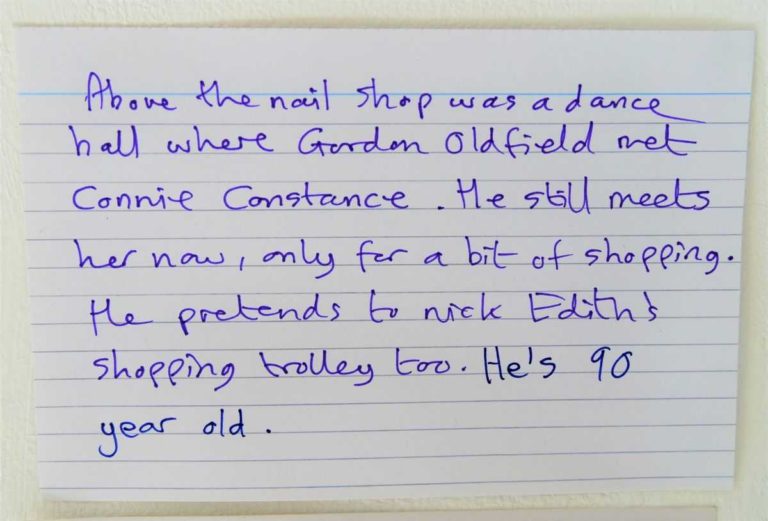 Above the nail shop was a dance
hall where Gordon Oldfield met
Connie Constance. He still meets
her now, only for a bit of shopping.
He pretends to nick Edith's
shopping trolley too. He's 90
year old.